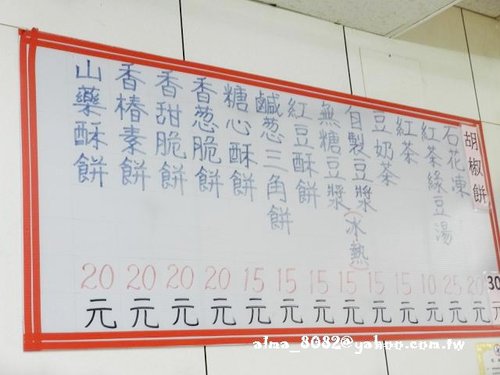 胡椒餅 30元
石花凍 20元
紅茶綠豆湯 25元
紅茶 10元
豆奶茶 15元
自製豆漿(冰熱) 15元
無糖豆漿 15元
紅豆酥餅 15元
鹹葱三角餅 15元
糖心酥餅 15元
香葱脆餅 20元
香甜脆餅 20元
香椿素餅 20元
山藥酥餅 20元
alma_8082@yahoo.com.tw